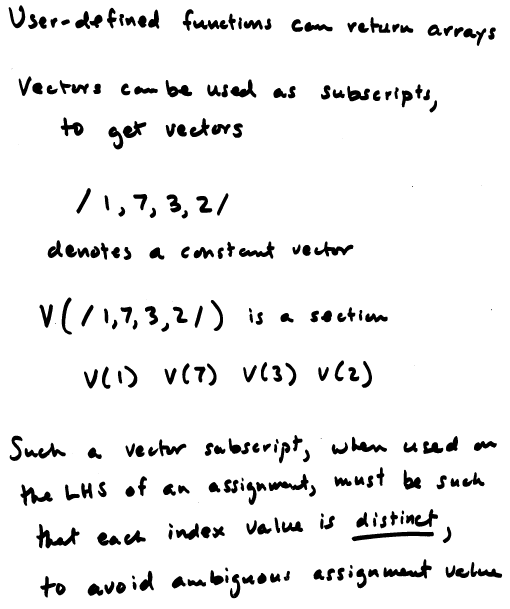 User-defined functions can return arrays
Vectors can be used as subscripts,
to get vectors
/ 1, 7, 3, 2 /
denotes a constant vector
V( / 1, 7, 3, 2 / ) is a section
V(1) V(7) V(3) V(2)
Such a vector subscript, when used on
the LHS of an assignment, must be such
that each index value is distinct,
to avoid ambiguous assignment value